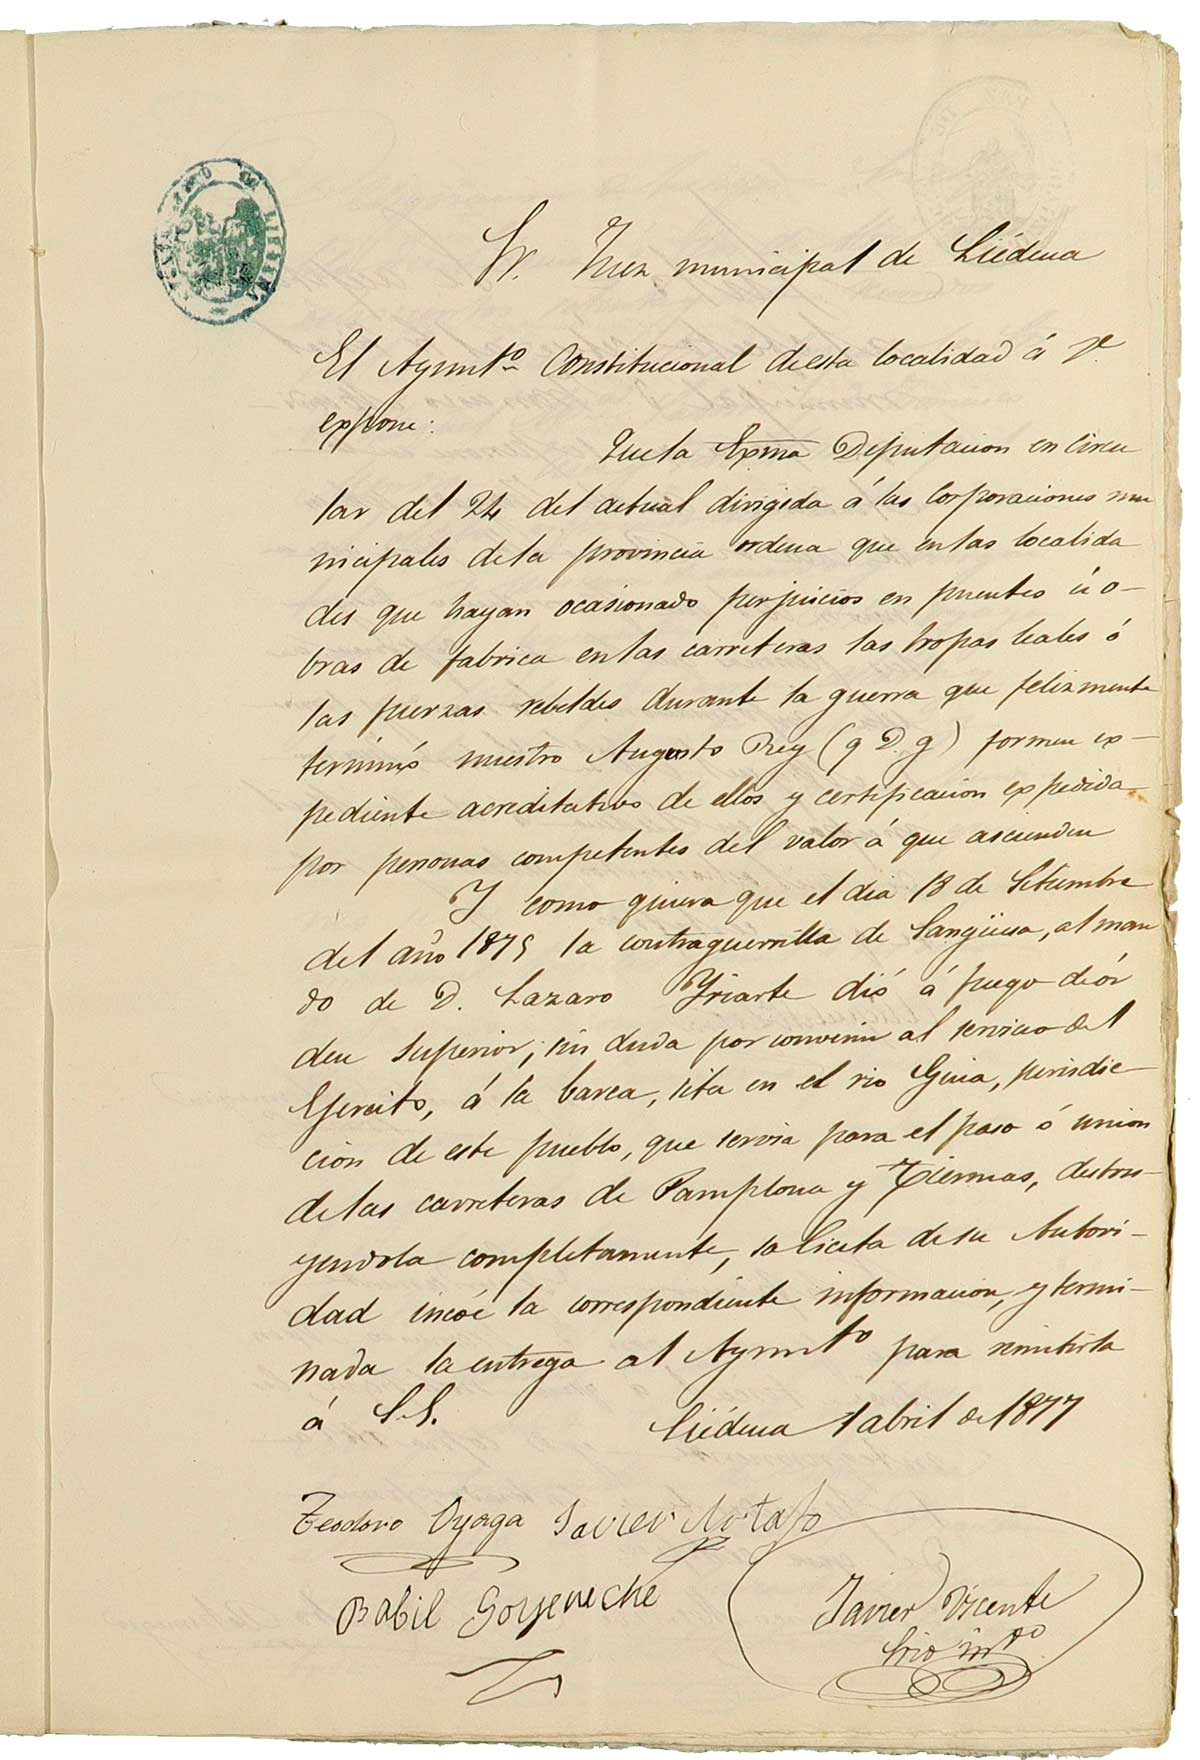 AYUNTAMIENTO DE LIEDENA
Sr. Juez municipal de Liédena
El Aymtº Constitucional de esta localidad á V.
expone:
Que la Exma Deputacion en circu
lar del 24 del actual dirigida á las Corporaciones mu
nicipales de la provincia ordena que en las localida
des que hayan ocasionado perjuicios en puentes ú o-
bras de fabrica en las carreteras las tropas leales ó
las fuerzas rebeldes durante la guerra que felizmente
terminó nuestro Augusto Rey (q D. g) formen ex-
pediente acreditativo de ellos y certificacion expedida
por personas competentes del valor á que ascienden
Y como quiera que el dia 18 de Setiembre
del año 1875 la contraguerrilla de Sangüesa, al man
do de D. Lazaro Yriarte dió á fuego de ór
den superior, sin duda por convenir al servicio del
Ejercito, á la barca, sita en el rio, jurisdic-
cion de este pueblo, que servia para el paso ó union
de las carreteras de Pamplona y Tiermas, destru-
yendola completamente, solicita de su Autori-
dad incoe la correspondiente informacion, y termi-
nada la entrega al Aymtº para remitirla
á S.S.
Liédena 1 abril de 1877
Teodoro Oyaga Javier
Babil Goyeneche
Javier Vicente
Srio intº